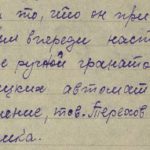 а то, что он при
им впереди наст
с ручной граната
ецких автомат
нение, тов. Терехов
ика.